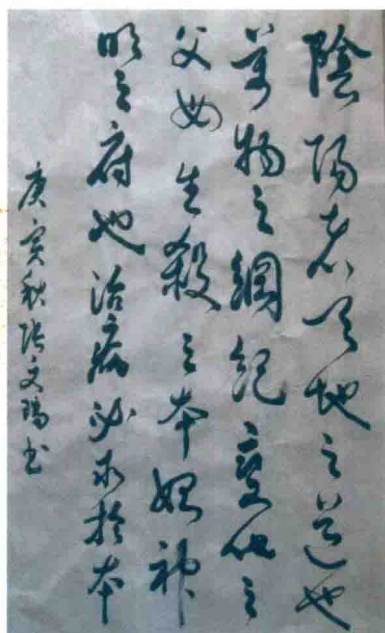 陰陽者天地之道也
萬物之綱紀變化之
父母生殺之本始神
明之府也治病必求於本
庚寅秋張文瑞書